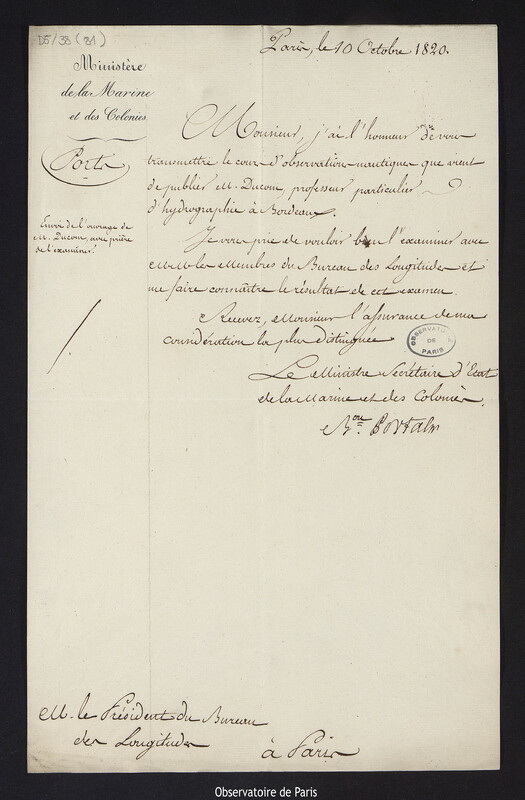 D5/38 (21)
Paris, le 10 Octobre 1820.
Ministère
de la Marine
et des Colonies
Ports
Envoi de l'ouvrage de
M. Ducom, avec prière
de l'examiner.
Monsieur, j'ai l'honneur de vous
transmettre le cours d'observations nautiques que vient
de publier M. Ducom, professeur particulier
d'hydrographie à Bordeaux.
Je vous prie de vouloir bien l'examiner avec
M.M. les Membres du Bureau des Longitudes et
me faire connaître le résultat de cet examen.
Recevez, Monsieur l'assurance de ma
considération la plus distinguée
OBSERVATOIRE
DE
PARIS
Le Ministre Secrétaire d'Etat
de la Marine et des Colonies,
Bon. Portal
M. le Président du Bureau
des Longitudes
à Paris
Observatoire de Paris